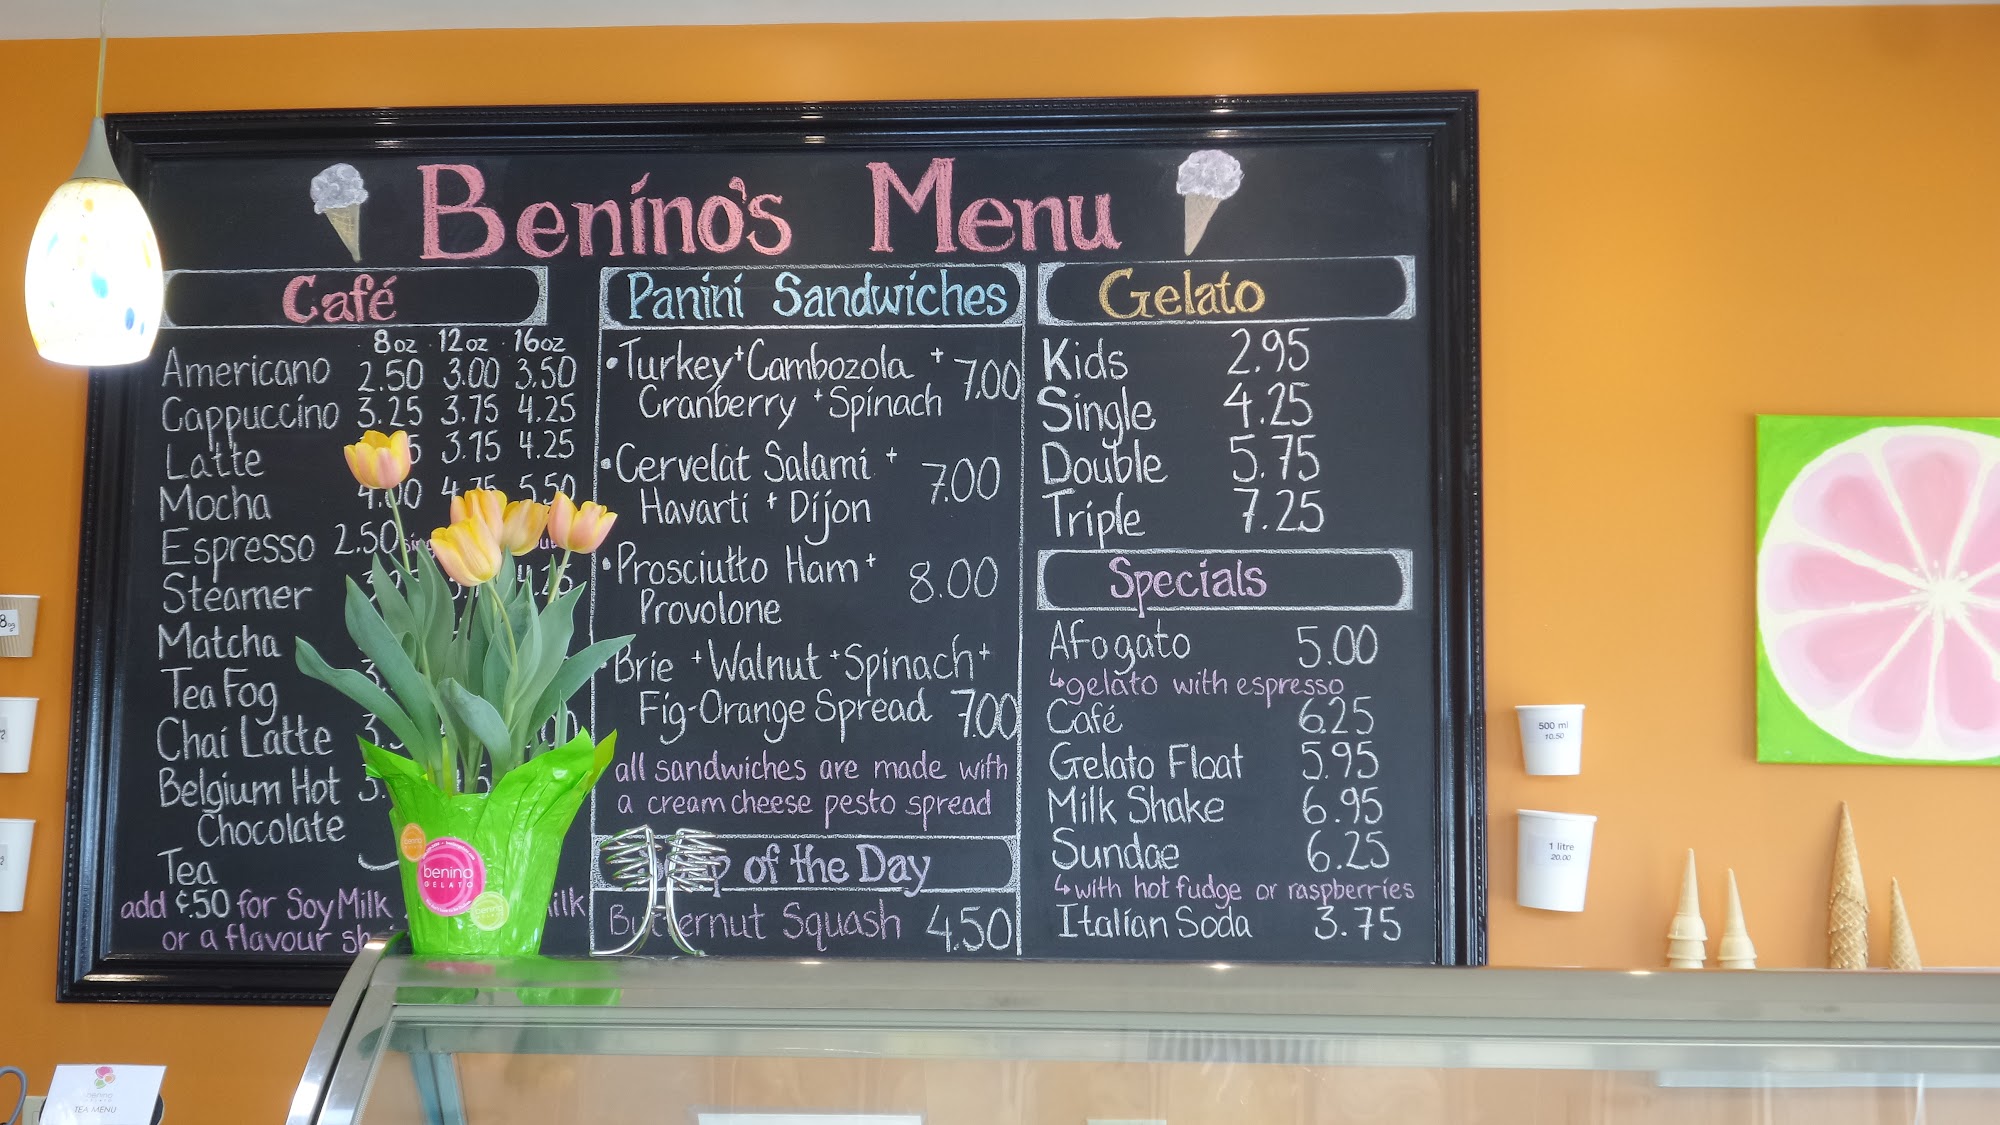 Benino's Menu
Café
8oz 12oz 16oz
Americano 2.50 3.00 3.50
Cappuccino 3.25 3.75 4.25
Latte 3.75 4.25
Mocha 4.00 4.75 5.50
Espresso 2.50
Steamer
Matcha
Tea Fog
Chai Latte
Belgium Hot
Chocolate
Tea
add ¢.50 for Soy Milk
or a flavour
Panini Sandwiches
•Turkey + Cambozola +
Cranberry + Spinach 7.00
•Cervelat Salami +
Havarti + Dijon 7.00
•Prosciutto Ham +
Provolone 8.00
•Brie + Walnut + Spinach +
Fig-Orange Spread 7.00
all sandwiches are made with
a cream cheese pesto spread
of the Day
Butternut Squash 4.50
Gelato
Kids 2.95
Single 4.25
Double 5.75
Triple 7.25
Specials
Afogato 5.00
↳gelato with espresso
Café 6.25
Gelato Float 5.95
Milk Shake 6.95
Sundae 6.25
↳with hot fudge or raspberries
Italian Soda 3.75
500 ml
10.50
1 litre
20.00
8oz
benino
GELATO
benino
TEA MENU